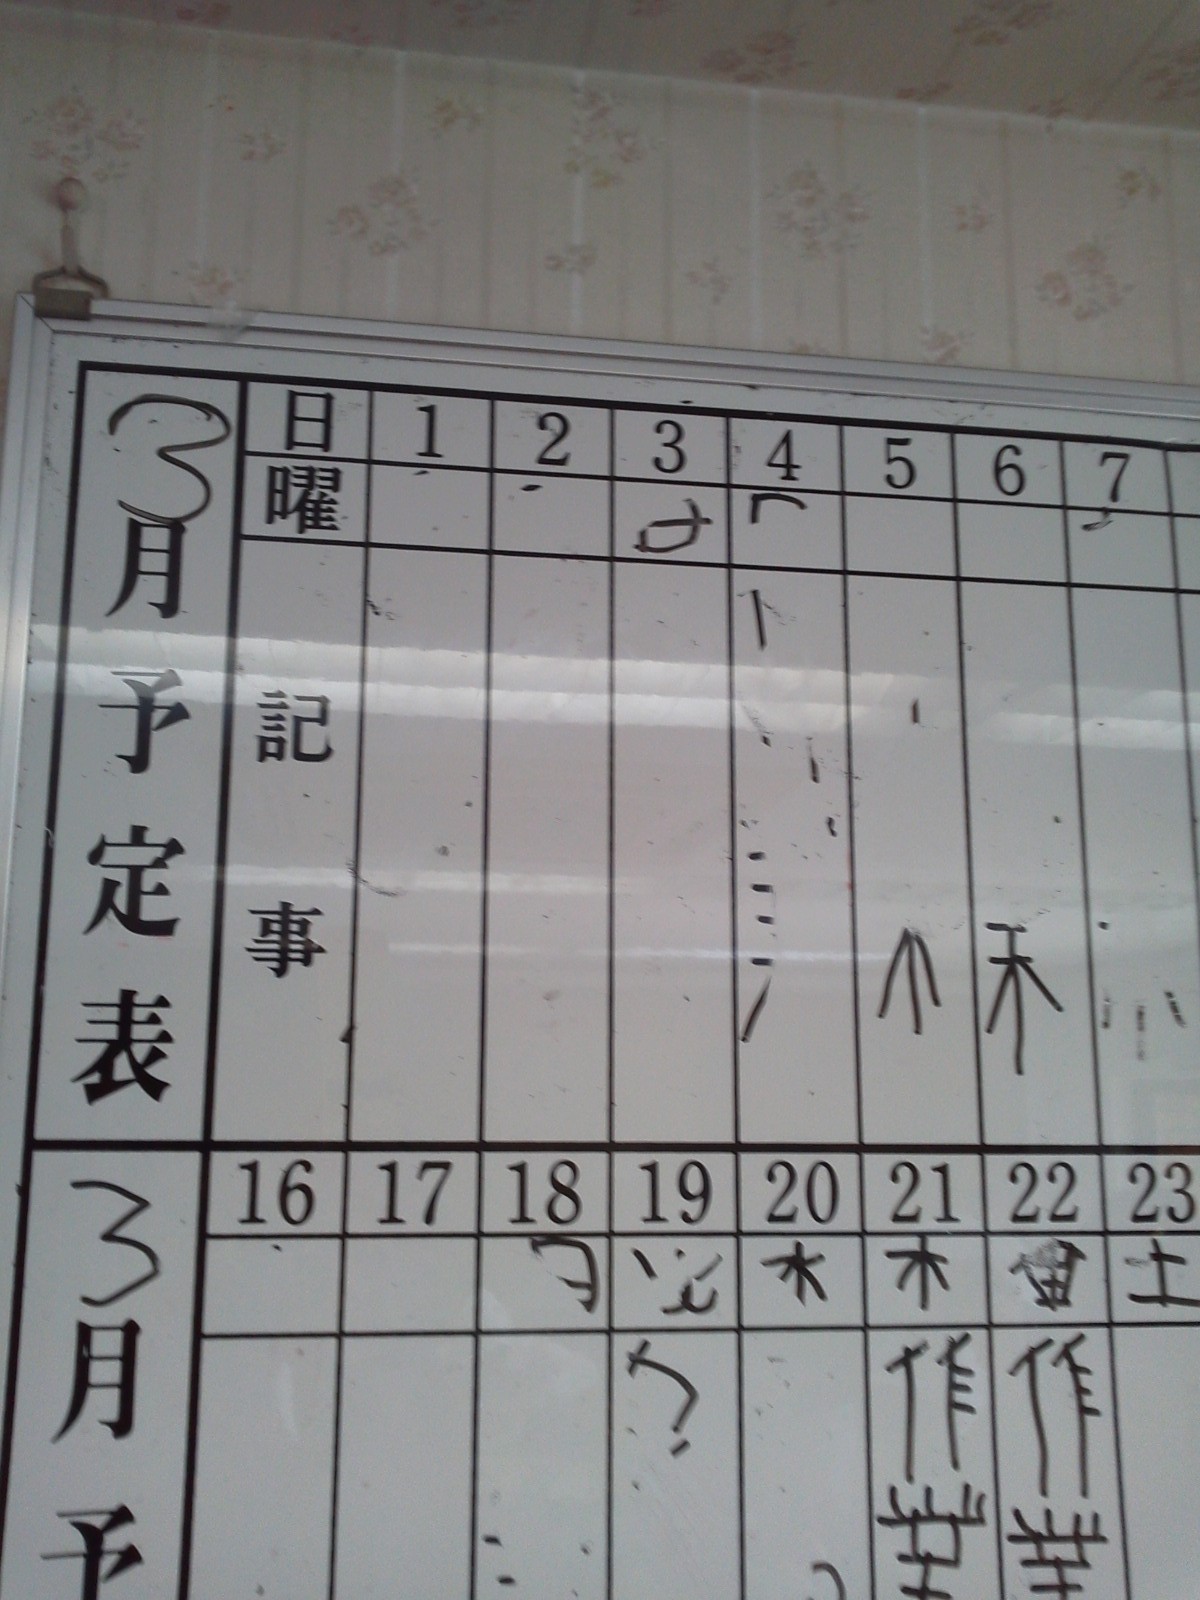 3月予定表
日 1 2 3 4 5 6 7
曜
記事
3月予
16 17 18 19 20 21 22 23
水 木 金 土
作業 作業